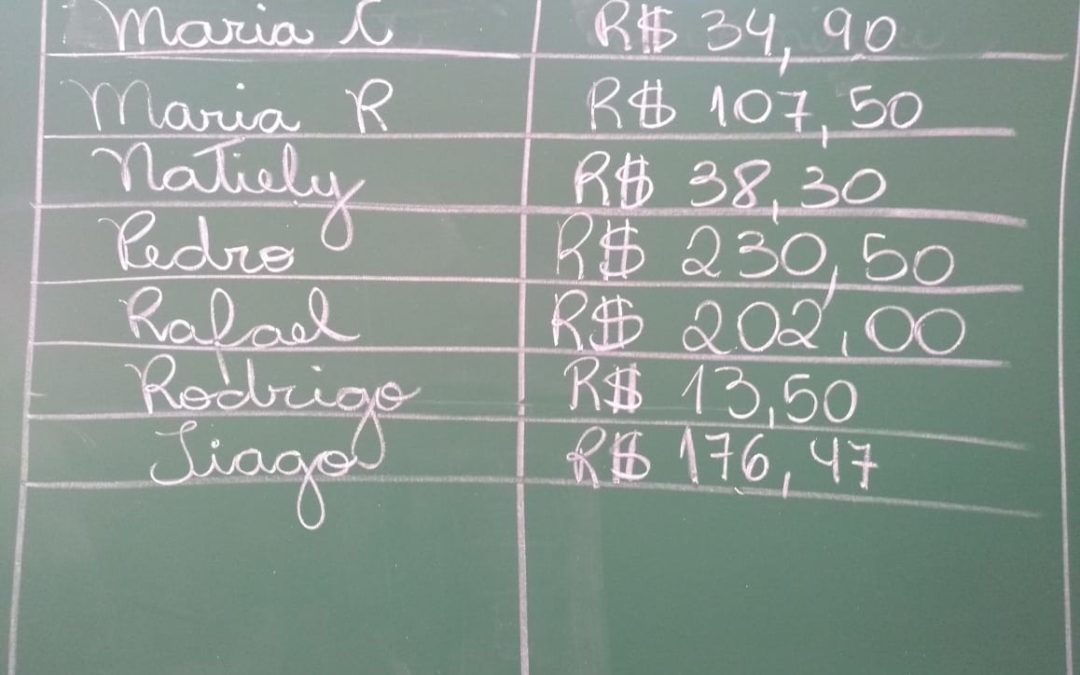 Maria C R$ 34,90
Maria R R$ 107,50
Natiely R$ 38,30
Pedro R$ 230,50
Rafael R$ 202,00
Rodrigo R$ 13,50
Tiago R$ 176,47